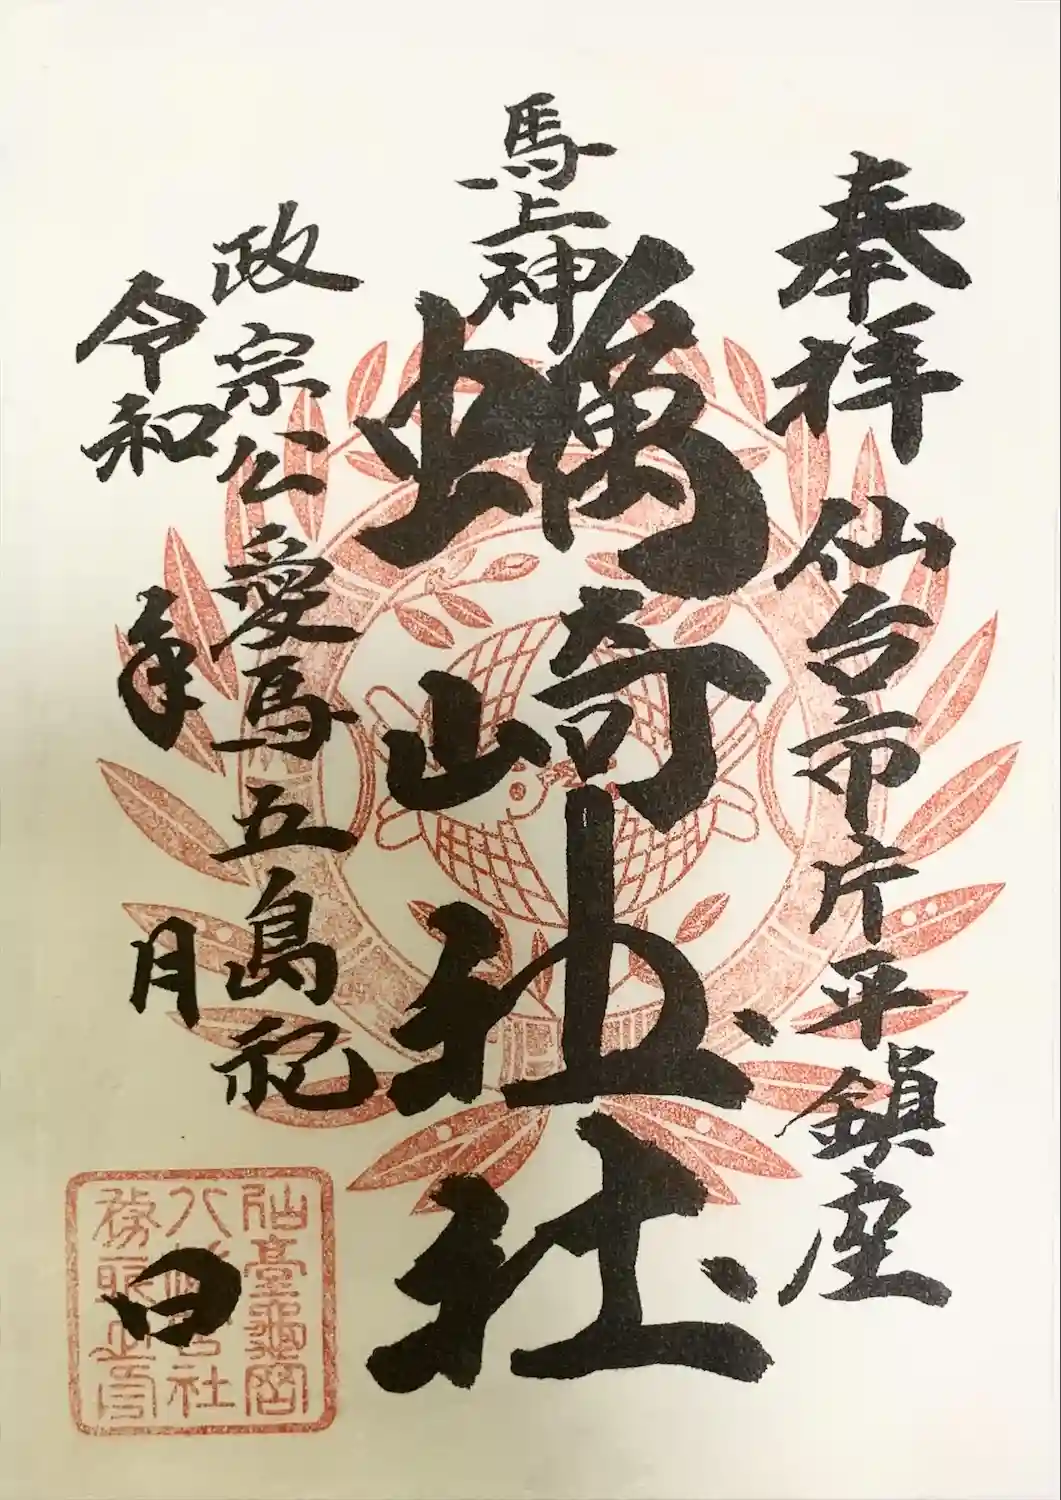 奉拝
仙台市片平鎮座
馬上神
蠣崎神社
政宗公愛馬五島祀
令和 年 月 日
仙臺龜岡
八幡宮社
務所之印